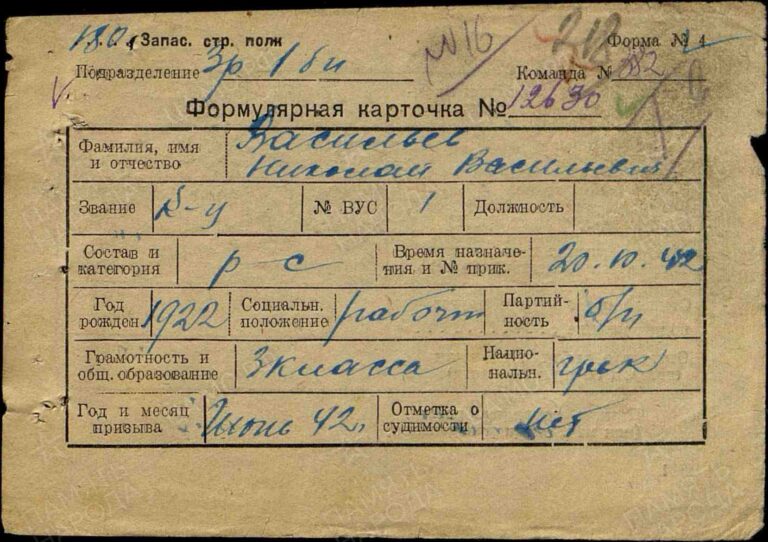 180 Запас. стр. полк
№ 16
212
Форма № 4
Подразделение 3 р 1 би
Команда № 882
Формулярная карточка № 12630
Фамилия, имя и отчество
Васильев
Николай Васильевич
Звание
К-ц
№ ВУС
1
Должность
Состав и категория
р-с
Время назначения и № прик.
20.10.42
Год рожден
1922
Социальн. положение
рабочий
Партийность
б/п
Грамотность и общ. образование
3 класса
Националн.
грек
Год и месяц призыва
Июнь 42 г.
Отметка о судимости
нет